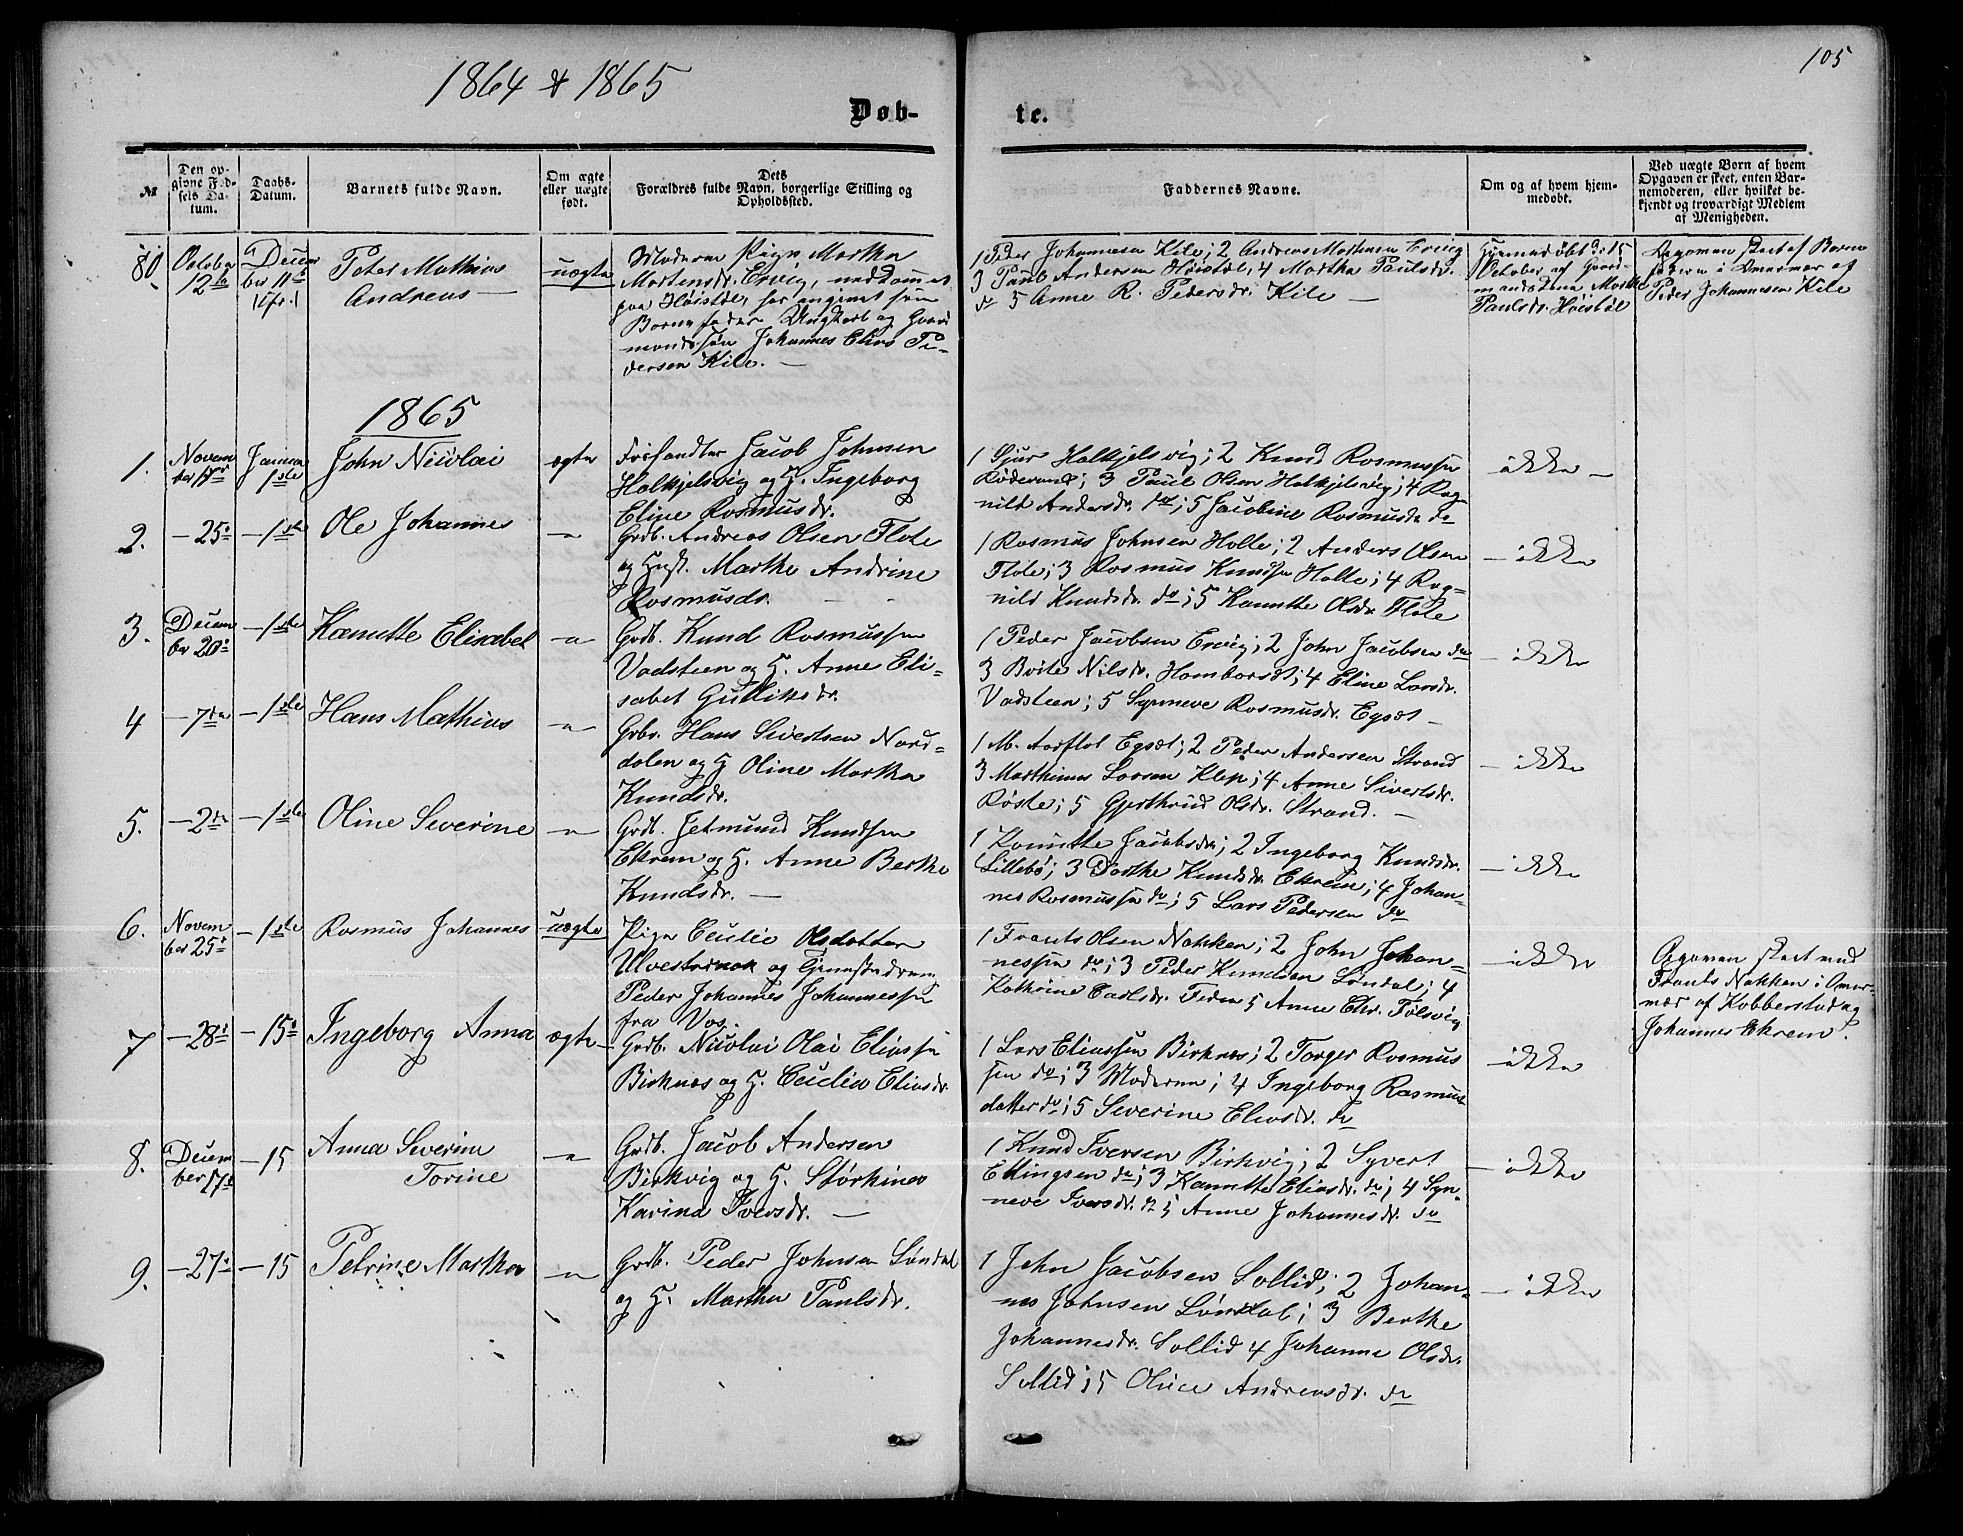 105
1864 & 1865
Døb-
te.
№
Den op-
givne Fød-
sels Da-
tum.
Daabs-
Datum.
Barnets fulde Navn.
Om ægte
eller uægte
født.
Dets
Forældres fulde Navn, borgerlige Stilling og
Opholdssted.
Faddernes Navne.
Om og af hvem hjem-
medøbt.
Ved uægte Børn af hvem
Opgaven er skeet, enten Bar-
nemoderen, eller hvilket be-
kjendt og troværdigt Medlem
af Menigheden.
80.
October
12te
Decem
ber 11te
Peter Mathias
Andreas
uægte
Moderen Pige Martha
Martensdr. Ervig,
paa Høistøl, har angivet som
Barnefader Ungkarl og Gaard
mandssøn Johannes Elias Pe-
dersen Kile. —
1 Peder Johannesen Kile; 2 Andreas Mathisen Ervig
3 Paul Andersen Høistøl, 4 Martha Paulsdr.
do 5 Anne R. Pedersdr. Kile —
Hjemmedøbt d: 15
October af Gaard-
mandskone Marthe
Paulsdr. Høistøl
Opgaven skeet af Barne
faderen i Nærvær af
Peder Johannesen Kile
1865
1.
Novem
ber 17de
Januar
1ste
John Nicolai
ægte
Forhandler Jacob Johnsen
Halkjelsvig og H. Ingeborg
Eline Rasmusdr.
1 Gjur Halkjelsvig; 2 Knud Rasmussen
Røderund; 3 Paul Olsen Halkjelsvig; 4 Rag-
nild Andersdr. do; 5 Jacobine Rasmusdr. do
ikke —
2.
— 25de
— 1ste
Ole Johannes
— " —
Grdb. Andreas Olsen Flote
og Hust. Marthe Andrine
Rasmusdr. — —
1 Rasmus Johnsen Holle; 2 Anders Olsen
Flote; 3 Rasmus Knudsen Holle; 4 Rag-
nild Knudsdr. do; 5 Kanutte Olsdr. Flote
— ikke
3.
Decem
ber 20de
— 1ste
Kanutte Elisabet
— " —
Grdb. Knud Rasmussen
Vadsteen og H. Anne Eli-
sabet Gulliksdr.
1 Peder Jacobsen Ervig; 2 John Jacobsen do
3 Brite Nilsdr. Hamborset; 4 Eline Larsdr.
Vadsteen; 5 Synneve Rasmusdr. Egset —
— ikke
4
— 7de
— 1ste
Hans Mathias
— " —
Grbr. Hans Sivertsen Nord-
dalen og H Oline Martha
Knudsdr.
1 M. Aarflot Egset; 2 Peder Andersen Strand
3 Marthinus Larsen Klep; 4 Anne Sivertsdr.
Røste; 5 Gjerthrud Olsdr. Strand. —
— ikke
5.
— 2de
— 1ste
Oline Severine
— " —
Grdb. Jetmund Knudsen
Ekrem og H. Anne Berthe
Knudsdr. —
1 Kanutte Jacobsdr.; 2 Ingeborg Knudsdr.
Lillebø; 3 Dorthe Knudsdr. Ekrem; 4 Johan-
nes Rasmussen do; 5 Lars Pedersen do
— ikke
6.
Novem
ber 25de
— 1ste
Rasmus Johannes
uægte
Pige Cecilie Olsdatter
og
Peder Johannes Johannessen
fra Vos.
1 Frants Olsen Nakken; 2 John Johan-
nessen do; 3 Peder Knudsen Løndal; 4
Kathrine Carlsdr. 5 Anne Chr. Følsvig
— ikke
Opgaven skeet ved
Frants Nakken i Nær-
vær af Kobberstad og
Johannes Ekrem.
7
— 28de
— 15de
Ingeborg Anna
ægte
Grdb. Nicolai Olai Eliassen
Birknes og H. Cecilia Eliasdr.
1 Lars Eliassen Birknes; 2 Torger Rasmus
sen do; 3 Moderen; 4 Ingeborg Rasmus-
datter do; 5 Severine Eliasdr. do
— ikke
8.
Decem
ber 17de
— 15
Anna Severine
Torine
— " —
Grdb. Jacob Andersen
Birkvig og H. Størkines
Karina Iversdr. —
1 Knud Iversen Birkvig; 2 Syvert
Ellingsen do; 3 Kanutte Eliasdr. do; 4 Syn-
neve Iversdr. do 5 Anne Johannesdr. do
— ikke
9.
— 27de
— 15
Petrine Martha
— " —
Grdb. Peder Johnsen Løndal
og H. Martha Paulsdr.
1 John Jacobsen Sollid; 2 Johan-
nes Johnsen Løndal; 3 Berthe
Johannesdr. Sollid 4 Johanne Olsdr.
Sollid; 5 Oline Andreasdr. do
— ikke